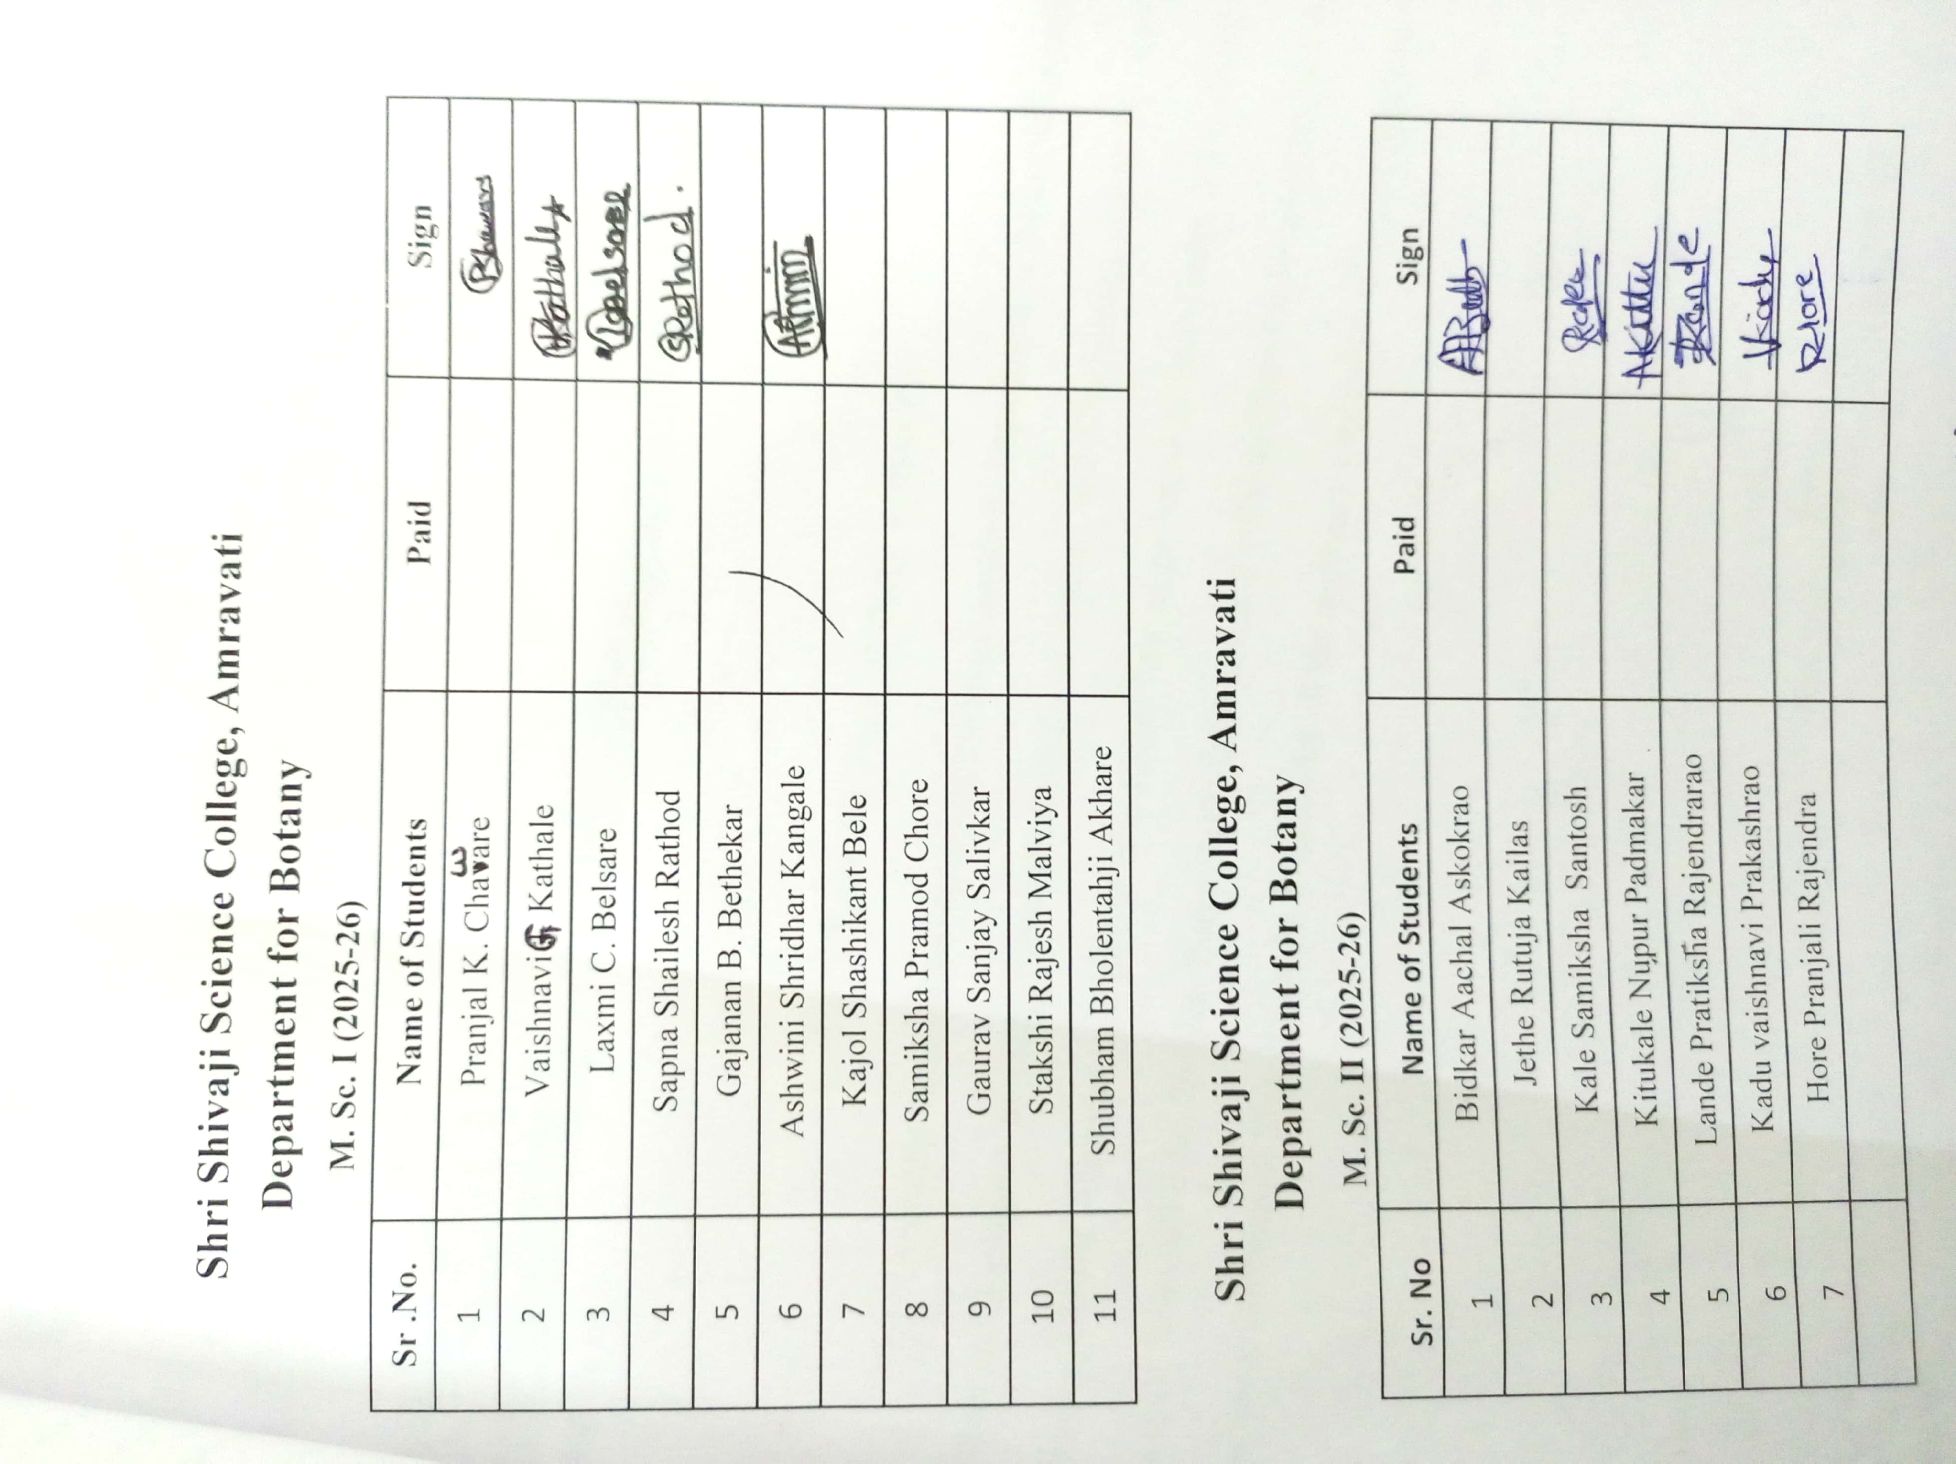 Shri Shivaji Science College, Amravati
Department for Botany
M. Sc. I (2025-26)
Sr .No. Name of Students Paid Sign
1 Pranjal K. Chaware
2 Vaishnavi G. Kathale Kathale
3 Laxmi C. Belsare Belsare
4 Sapna Shailesh Rathod Rathod.
5 Gajanan B. Bethekar
6 Ashwini Shridhar Kangale
7 Kajol Shashikant Bele
8 Samiksha Pramod Chore
9 Gaurav Sanjay Salivkar
10 Stakshi Rajesh Malviya
11 Shubham Bholentahji Akhare
Shri Shivaji Science College, Amravati
Department for Botany
M. Sc. II (2025-26)
Sr. No Name of Students Paid Sign
1 Bidkar Aachal Askokrao
2 Jethe Rutuja Kailas
3 Kale Samiksha Santosh
4 Kitukale Nupur Padmakar
5 Lande Pratiksha Rajendrarao
6 Kadu vaishnavi Prakashrao
7 Hore Pranjali Rajendra